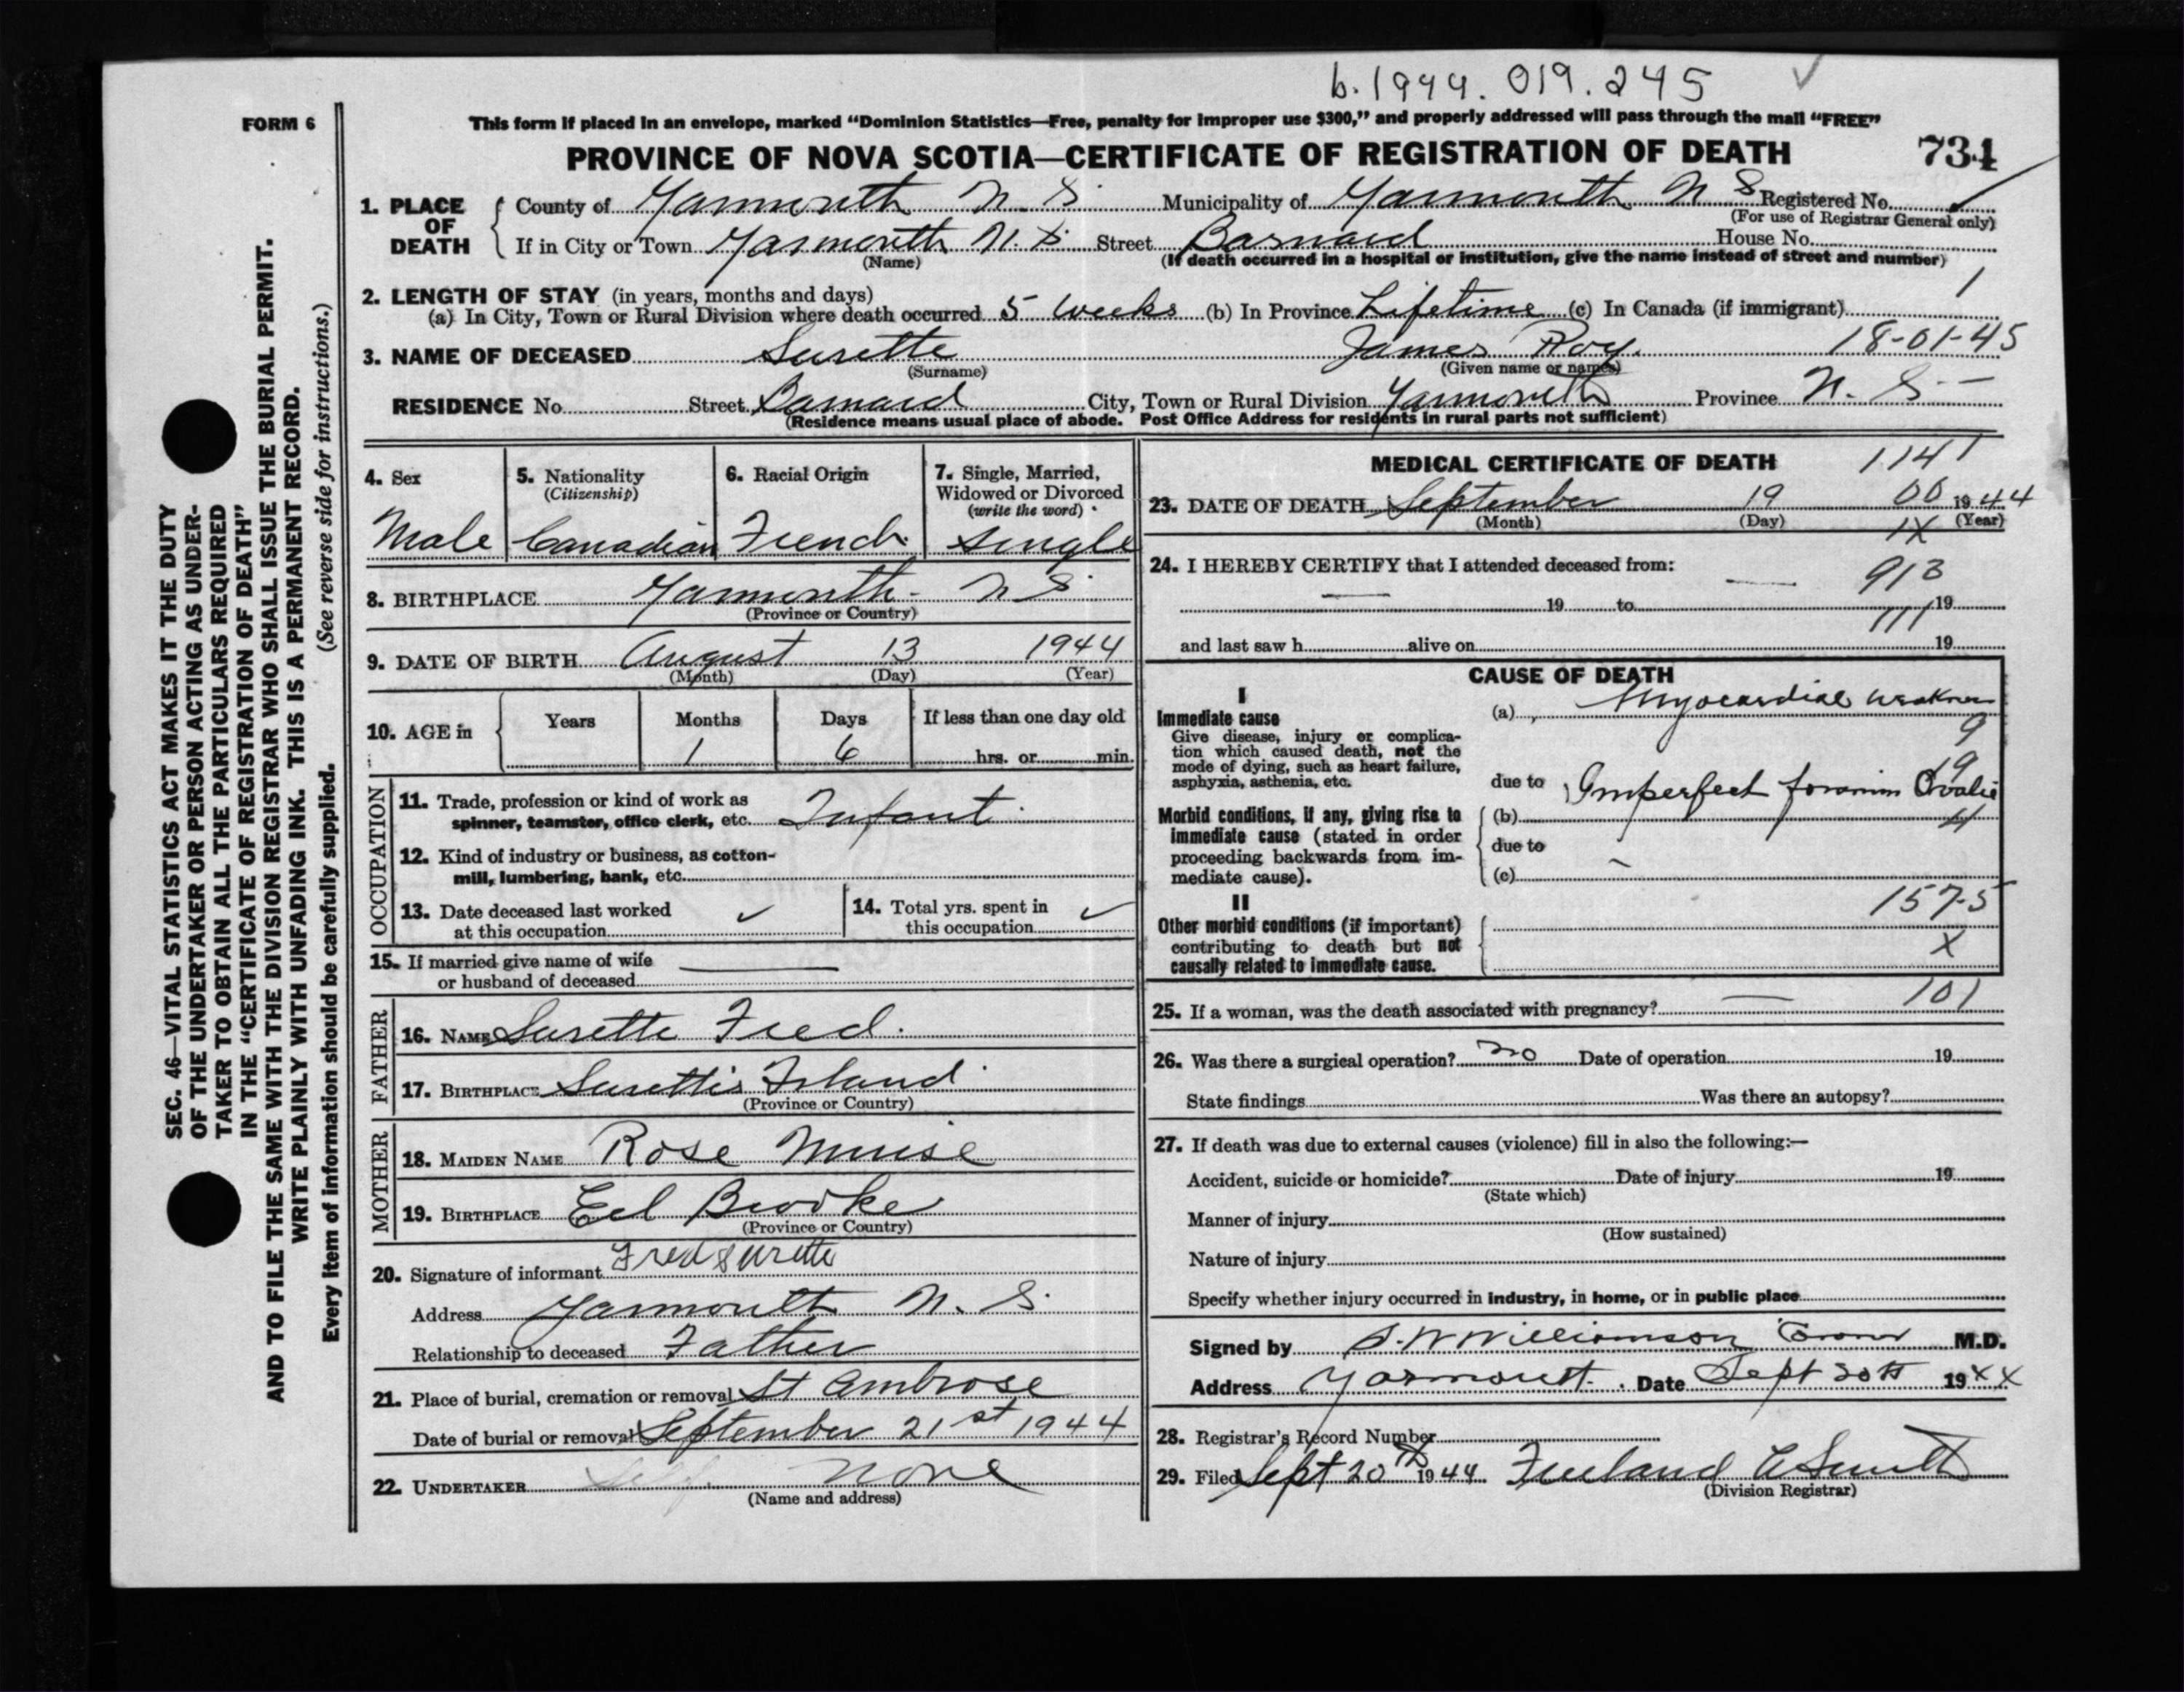 b. 1944. 019. 245 ✓
FORM 6
This form if placed in an envelope, marked “Dominion Statistics—Free, penalty for improper use $300,” and properly addressed will pass through the mail “FREE”
PROVINCE OF NOVA SCOTIA—CERTIFICATE OF REGISTRATION OF DEATH 734
1. PLACE OF DEATH
County of Yarmouth N. S. Municipality of Yarmouth N S Registered No.
(For use of Registrar General only)
If in City or Town Yarmouth N. S. Street Barnard House No.
(Name) (If death occurred in a hospital or institution, give the name instead of street and number)
2. LENGTH OF STAY (in years, months and days) 1
(a) In City, Town or Rural Division where death occurred 5 weeks (b) In Province Lifetime (c) In Canada (if immigrant)
3. NAME OF DECEASED Surette James Roy. 18-01-45
(Surname) (Given name or names)
RESIDENCE No. Street Barnard City, Town or Rural Division Yarmouth Province N. S. —
(Residence means usual place of abode. Post Office Address for residents in rural parts not sufficient)
4. Sex
Male
5. Nationality
(Citizenship)
Canadian
6. Racial Origin
French
7. Single, Married,
Widowed or Divorced
(write the word)
Single
8. BIRTHPLACE Yarmouth - N S.
(Province or Country)
9. DATE OF BIRTH August 13 1944
(Month) (Day) (Year)
10. AGE in Years Months Days If less than one day old
1 6 hrs. or min.
OCCUPATION
11. Trade, profession or kind of work as
spinner, teamster, office clerk, etc. Infant
12. Kind of industry or business, as cotton-
mill, lumbering, bank, etc.
13. Date deceased last worked
at this occupation ✓
14. Total yrs. spent in
this occupation ✓
15. If married give name of wife
or husband of deceased —
FATHER
16. NAME Surette Fred.
17. BIRTHPLACE Surettis Island.
(Province or Country)
MOTHER
18. MAIDEN NAME Rose Muise
19. BIRTHPLACE Eel Brooke
(Province or Country)
20. Signature of informant Fred Surette
Address Yarmouth N. S.
Relationship to deceased Father
21. Place of burial, cremation or removal St Ambrose
Date of burial or removal September 21st 1944
22. UNDERTAKER Self None
(Name and address)
MEDICAL CERTIFICATE OF DEATH 1141
23. DATE OF DEATH September 19 00 1944
(Month) (Day) (Year)
1X
24. I HEREBY CERTIFY that I attended deceased from: — 913
— 19 to 19
111
and last saw h alive on 19
CAUSE OF DEATH
I
Immediate cause
Give disease, injury or complica-
tion which caused death, not the
mode of dying, such as heart failure,
asphyxia, asthenia, etc.
(a) Myocardial weakness
9
19
due to Imperfect foramin Ovalie
Morbid conditions, if any, giving rise to
immediate cause (stated in order
proceeding backwards from im-
mediate cause).
(b) 4
due to
(c)
II 157-5
Other morbid conditions (if important)
contributing to death but not
causally related to immediate cause.
X
25. If a woman, was the death associated with pregnancy? — 101
26. Was there a surgical operation? no Date of operation 19
State findings Was there an autopsy?
27. If death was due to external causes (violence) fill in also the following:—
Accident, suicide or homicide? Date of injury 19
(State which)
Manner of injury
(How sustained)
Nature of injury
Specify whether injury occurred in industry, in home, or in public place
Signed by S. W Williamson Coroner M.D.
Address Yarmouth. Date Sept 20th 1944
28. Registrar's Record Number
29. Filed Sept 20th 1944 Freeland A Smith
(Division Registrar)
SEC. 46—VITAL STATISTICS ACT MAKES IT THE DUTY
OF THE UNDERTAKER OR PERSON ACTING AS UNDER-
TAKER TO OBTAIN ALL THE PARTICULARS REQUIRED
IN THE “CERTIFICATE OF REGISTRATION OF DEATH”
AND TO FILE THE SAME WITH THE DIVISION REGISTRAR WHO SHALL ISSUE THE BURIAL PERMIT.
WRITE PLAINLY WITH UNFADING INK. THIS IS A PERMANENT RECORD.
Every item of information should be carefully supplied. (See reverse side for instructions.)